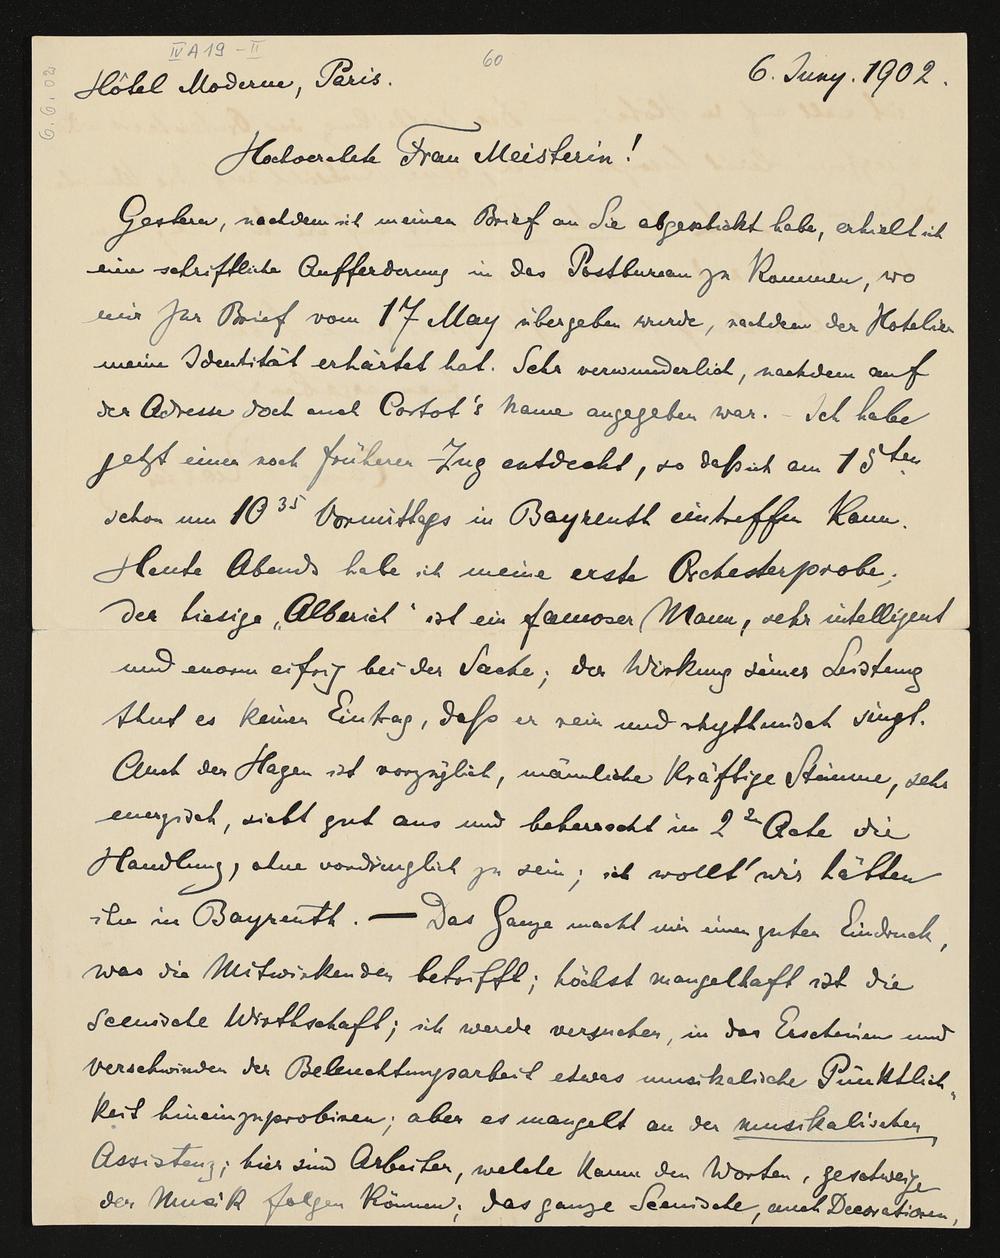 IV A 19 - II
60
6.6.02
Hôtel Moderne, Paris.
6. Juny. 1902.
Hochverehrte Frau Meisterin!
Gestern, nachdem ich meinen Brief an Sie abgeschickt habe, erhielt ich
eine schriftliche Aufforderung in das Postbureau zu kommen, wo
mir Ihr Brief vom 17 May übergeben wurde, nachdem der Hotelier
meine Identität erhärtet hat. Sehr verwunderlich, nachdem auf
der Adresse doch auch Cortot's Name angegeben war. – Ich habe
jetzt einen noch früheren Zug entdeckt, so daß ich am 15ten
schon um 10 35 Vormittags in Bayreuth eintreffen kann.
Heute Abends habe ich meine erste Orchesterprobe;
der hiesige „Alberich" ist ein famoser Mann, sehr intelligent
und enorm eifrig bei der Sache; der Wirkung seiner Leistung
thut es keinen Eintrag, daß er rein und rhythmisch singt.
Auch der Hagen ist vorzüglich, männliche kräftige Stimme, sehr
energisch, sieht gut aus und beherrscht im 2ten Acte die
Handlung, ohne vordringlich zu sein; ich wollt' wir hätten
ihn in Bayreuth. — Das Ganze macht mir einen guten Eindruck,
was die Mitwirkenden betrifft; höchst mangelhaft ist die
scenische Wirthschaft; ich werde versuchen, in das Erscheinen und
verschwinden der Beleuchtungsarbeit etwas musikalische Pünktlich-
keit hineinzuprobiren; aber es mangelt an der musikalischen
Assistenz; hier sind Arbeiter, welche kaum den Worten, geschweige
der Musik folgen können; das ganze Scenische, auch Decorationen,